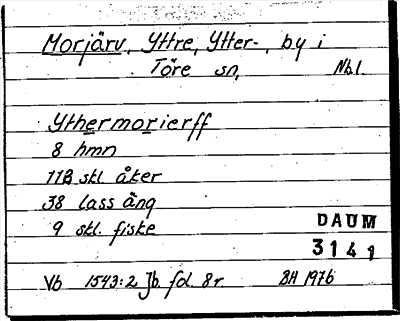 Morjärv, Yttre, Ytter-, by i
Töre sn, Nbl.
Ythermorierff
8 hmn
113 skl åker
38 lass äng
9 skl. fiske
DAUM
3141
Vb 1543:2 Jb. fol. 8r BH 1976